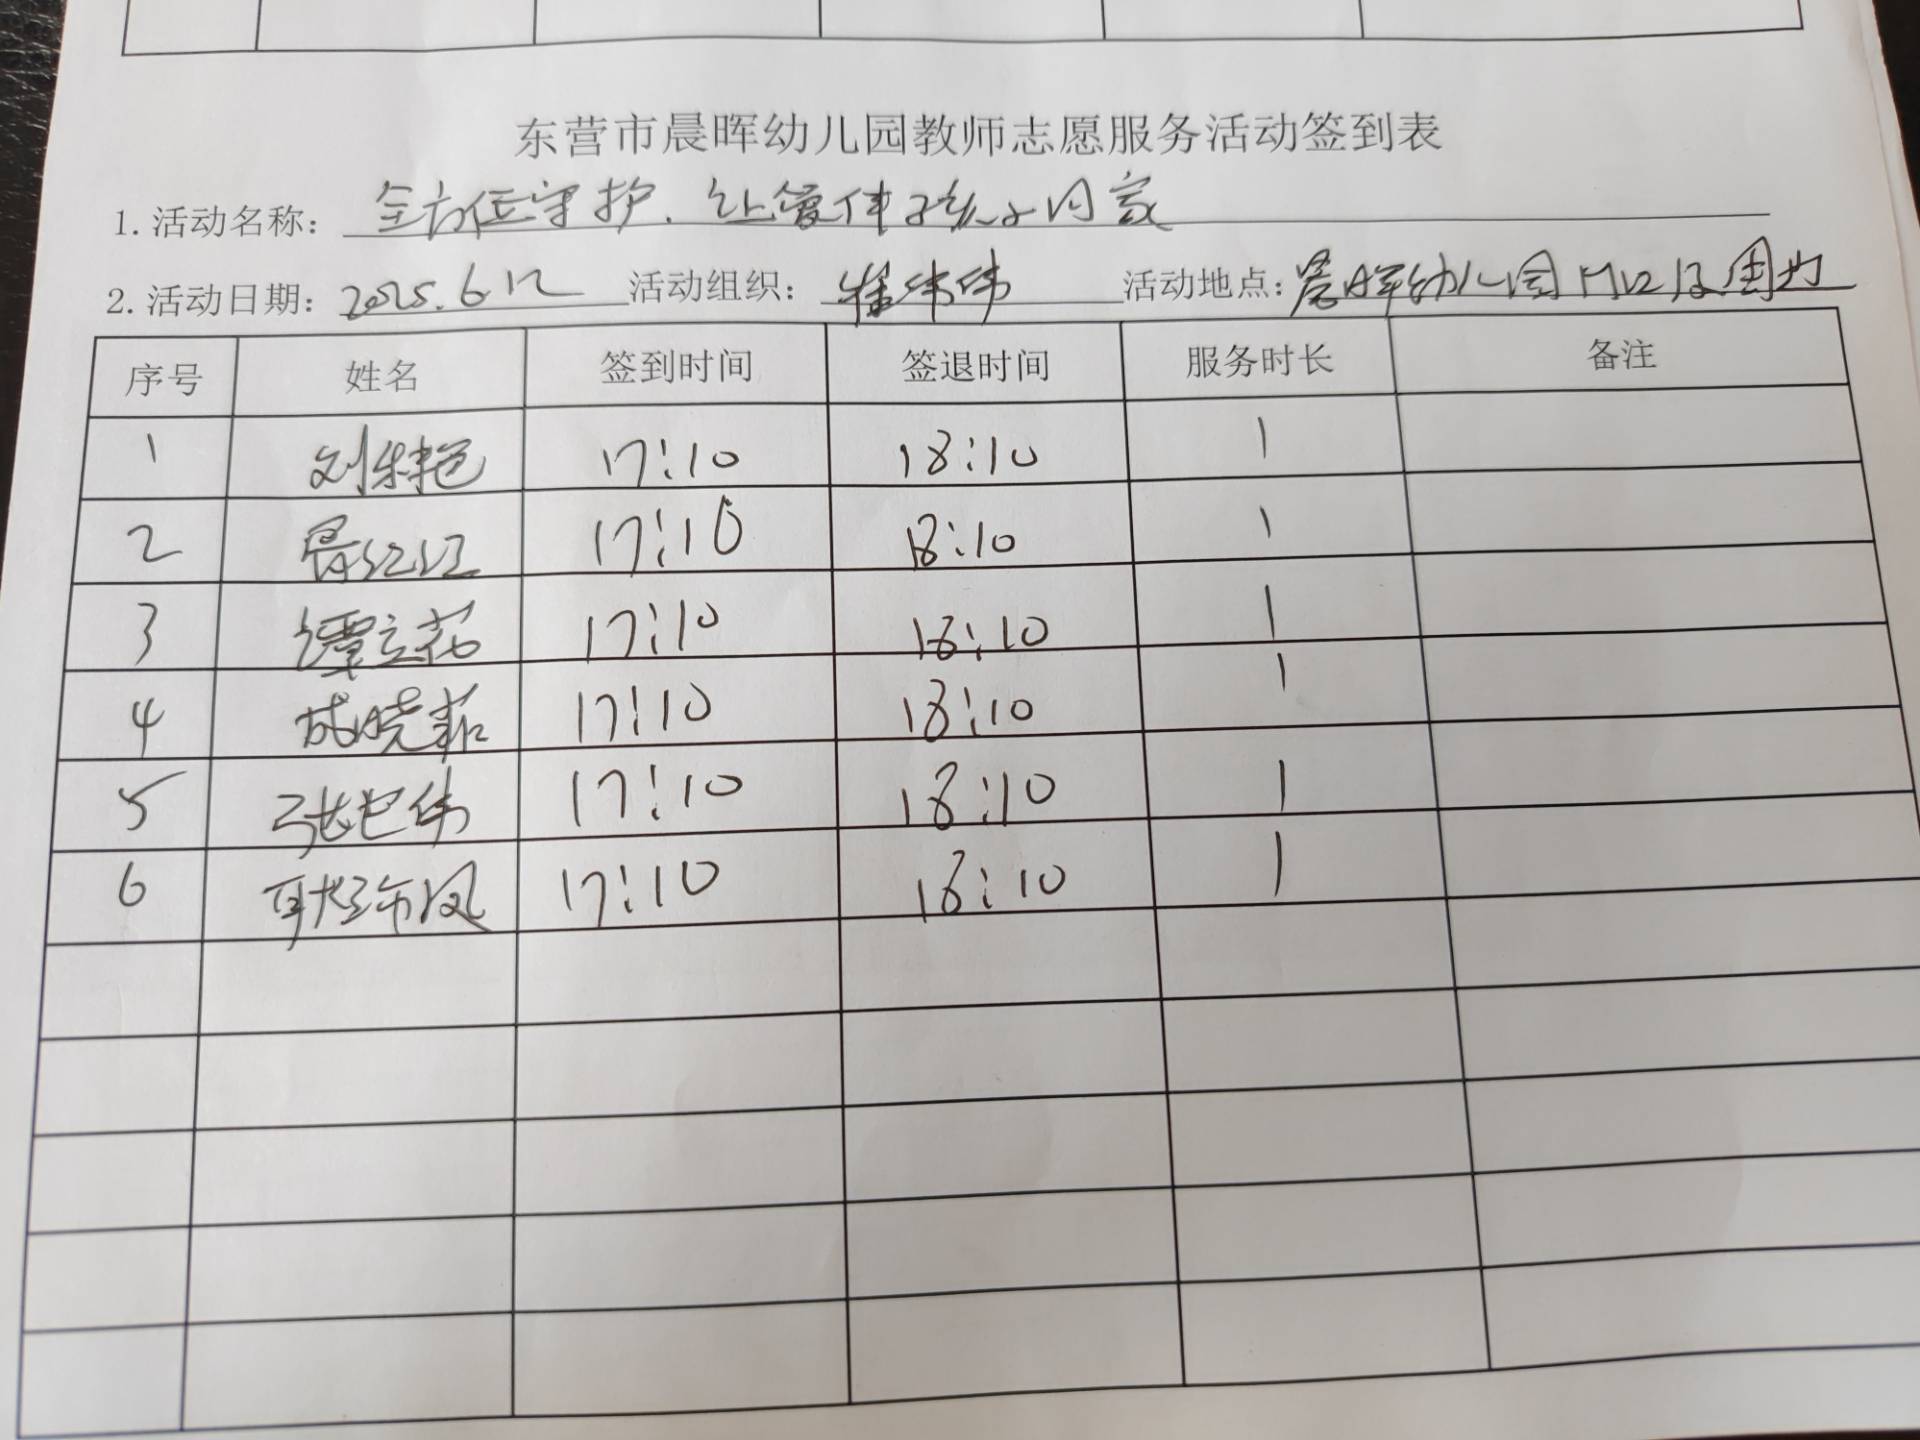 东营市晨晖幼儿园教师志愿服务活动签到表
1. 活动名称： 全方位守护、让爱伴孩子回家
2. 活动日期： 2025.6.12 活动组织： 崔伟伟 活动地点： 晨晖幼儿园门口及周边
序号 姓名 签到时间 签退时间 服务时长 备注
1 刘梓艳 17:10 18:10 1
2 红红 17:10 18:10 1
3 谭立花 17:10 18:10 1
4 成晓菲 17:10 18:10 1
5 张世伟 17:10 18:10 1
6 耿延凤 17:10 18:10 1